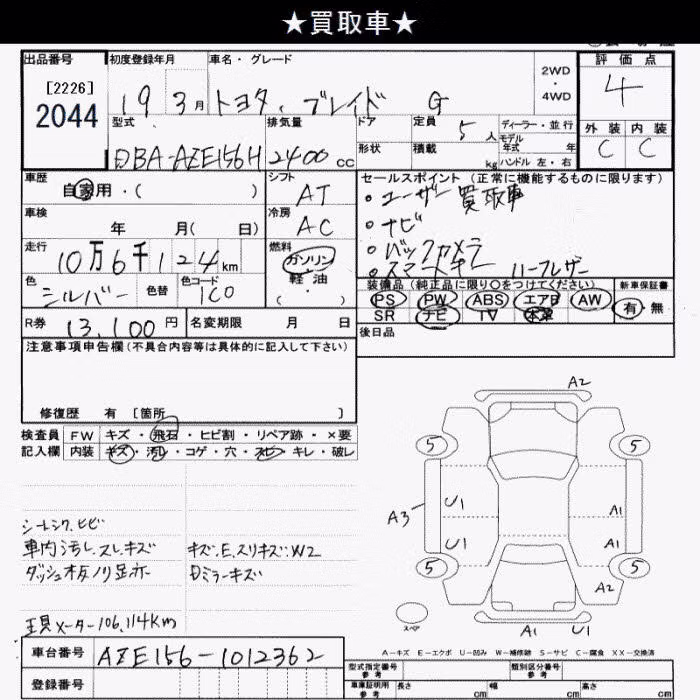 ★買取車★
出品番号 初度登録年月 車名・グレード 2WD・4WD 評価点
[2226]
2044
19 3月 トヨタ.ブレイド G 4
型式 排気量 ドア 定員 5人 ディーラー・並行 外装 内装
DBA-AZE156H 2400cc 形状 積載 kg モデル年式 年 C C
ハンドル 左・右
車歴 自家用・( ) シフト AT セールスポイント (正常に機能するものに限ります)
・ユーザー買取車
車検 年 月( 日) 冷房 AC ・ナビ
走行 10万6千124km 燃料 ガソリン ・バックカメラ
軽油 ( ) ・スマートキー ハーフレザー
色 シルバー 色替 色コード 1C0
装備品 (純正品に限り○をつけてください) 新車保証書
PS PW ABS エアB AW 有・無
SR ナビ TV 本革
R券 13,100円 名変期限 月 日
後日品
注意事項申告欄(不具合内容等は具体的に記入して下さい)
修復歴 有 [箇所 ]
検査員 FW キズ・飛石・ヒビ割・リペア跡・×要
記入欄 内装 キズ・汚れ・コゲ・穴・スレ・キレ・破レ
車内汚レ.スレ.キズ キズ.E.スリキズ.W2
Dミラーキズ
現メーター106,114km
車台番号 AZE156-1012362
登録番号
A2
5 5
A3 U1 A1
U1 A1
5 5
A2
スペア
A1 U1
A－キズ E－エクボ U－凹み W－補修跡 S－サビ C－腐食 XX－交換済
型式指定番号 参考 類別区分番号 参考
車庫証明用 参考 長さ cm 幅 cm 高さ cm